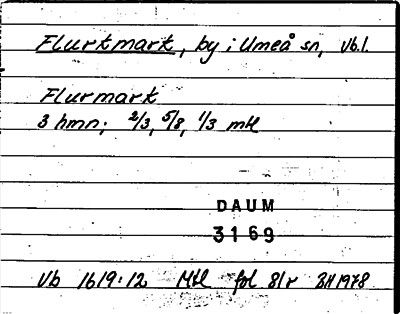 Flurkmark, by i Umeå sn, Vb.l.
Flurmark
3 hmn; 2/3, 5/8, 1/3 mtl
DAUM
3169
Vb 1619:12 Mtl fol 81r BH 1978